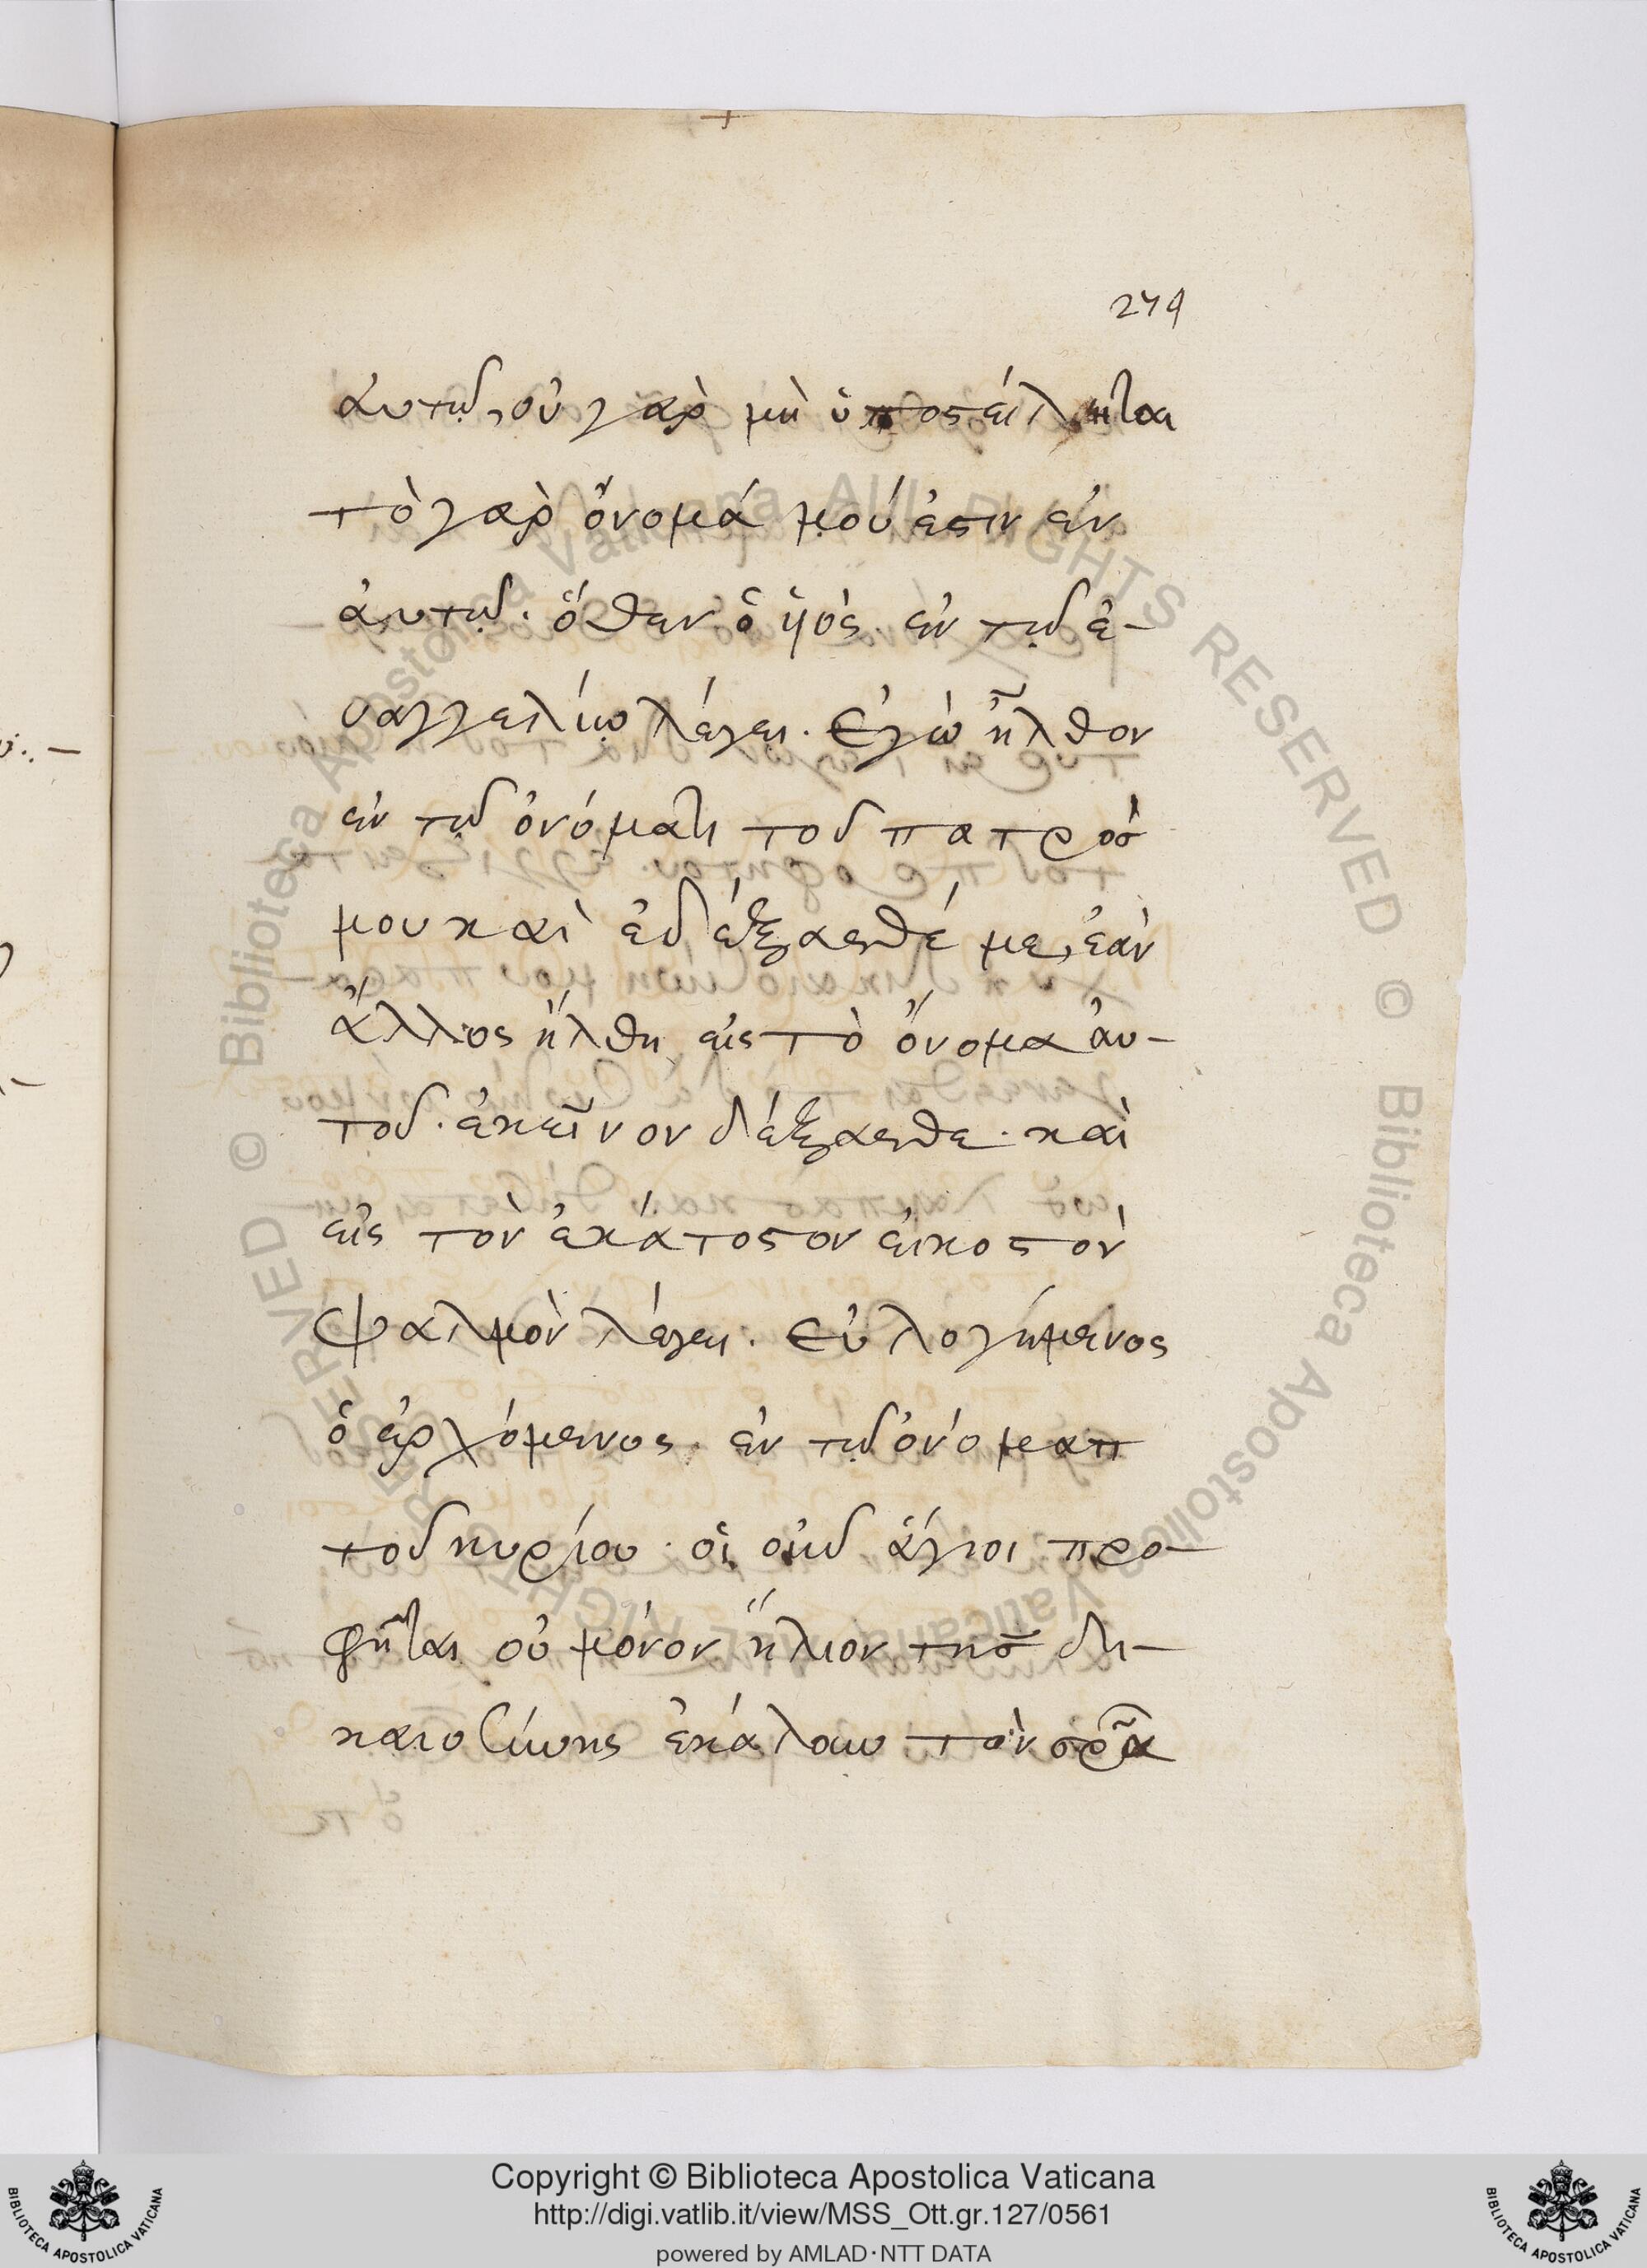 279
ἀυτῷ, οὐ γαρ μὴ ὑποστείληται
τὸ γαρ ὄνομά μού ἐστιν ἐν
ἀυτῷ· ὅθεν ὁ ὑιὸς ἐν τῷ ἐ-
υαγγελίῳ λέγει· Ἐγὼ ἦλθον
ἐν τῷ ὀνόματι τοῦ πατρὸσ
μου καὶ ἐδέξασθέ με, ἐὰν
ἄλλος ἤλθη εἰς τὸ ὄνομα ἀυ-
τοῦ· ἐκεῖνον δέξασθε· καὶ
εἰς τὸν ἑκάτοστον εἰκοστὸν
ψαλμὸν λέγει· Εὐλογήμενος
ὁ ἐρχόμενος ἐν τῷ ὀνόματι
τοῦ κυρίου· οἱ οὖν ἅγιοι προ-
φῆται οὐ μόνον ἥλιον τῆσ δι-
καιοσύνης ἐκάλουν τὸν σρ̅α̅
Copyright © Biblioteca Apostolica Vaticana
http://digi.vatlib.it/view/MSS_Ott.gr.127/0561
powered by AMLAD·NTT DATA